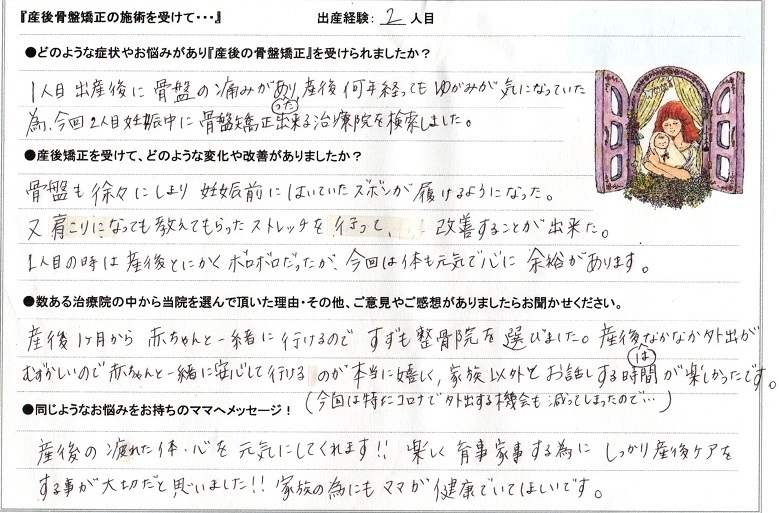 『産後骨盤矯正の施術を受けて・・・』 出産経験: 2 人目
●どのような症状やお悩みがあり『産後の骨盤矯正』を受けられましたか？
1人目出産後に骨盤の痛みがあり、産後何年経ってもゆがみが気になっていた
（った）
為、今回2人目妊娠中に骨盤矯正出来る治療院を検索しました。
●産後矯正を受けて、どのような変化や改善がありましたか？
骨盤も徐々にしまり妊娠前にはいていたズボンが履けるようになった。
又肩こりになっても教えてもらったストレッチを行って、改善することが出来た。
1人目の時は産後とにかくボロボロだったが、今回は体も元気で心に余裕があります。
●数ある治療院の中から当院を選んで頂いた理由・その他、ご意見やご感想がありましたらお聞かせください。
産後1ヶ月から赤ちゃんと一緒に行けるのですずも整骨院を選びました。産後なかなか外出が
むずかしいので赤ちゃんと一緒に安心して行けるのが本当に嬉しく、家族以外とお話しする時間は が楽しかったです。
（今回は特にコロナで外出する機会も減ってしまったので…）
●同じようなお悩みをお持ちのママへメッセージ！
産後の疲れた体・心を元気にしてくれます!! 楽しく育事家事する為にしっかり産後ケアを
する事が大切だと思いました!! 家族の為にもママが健康でいてほしいです。